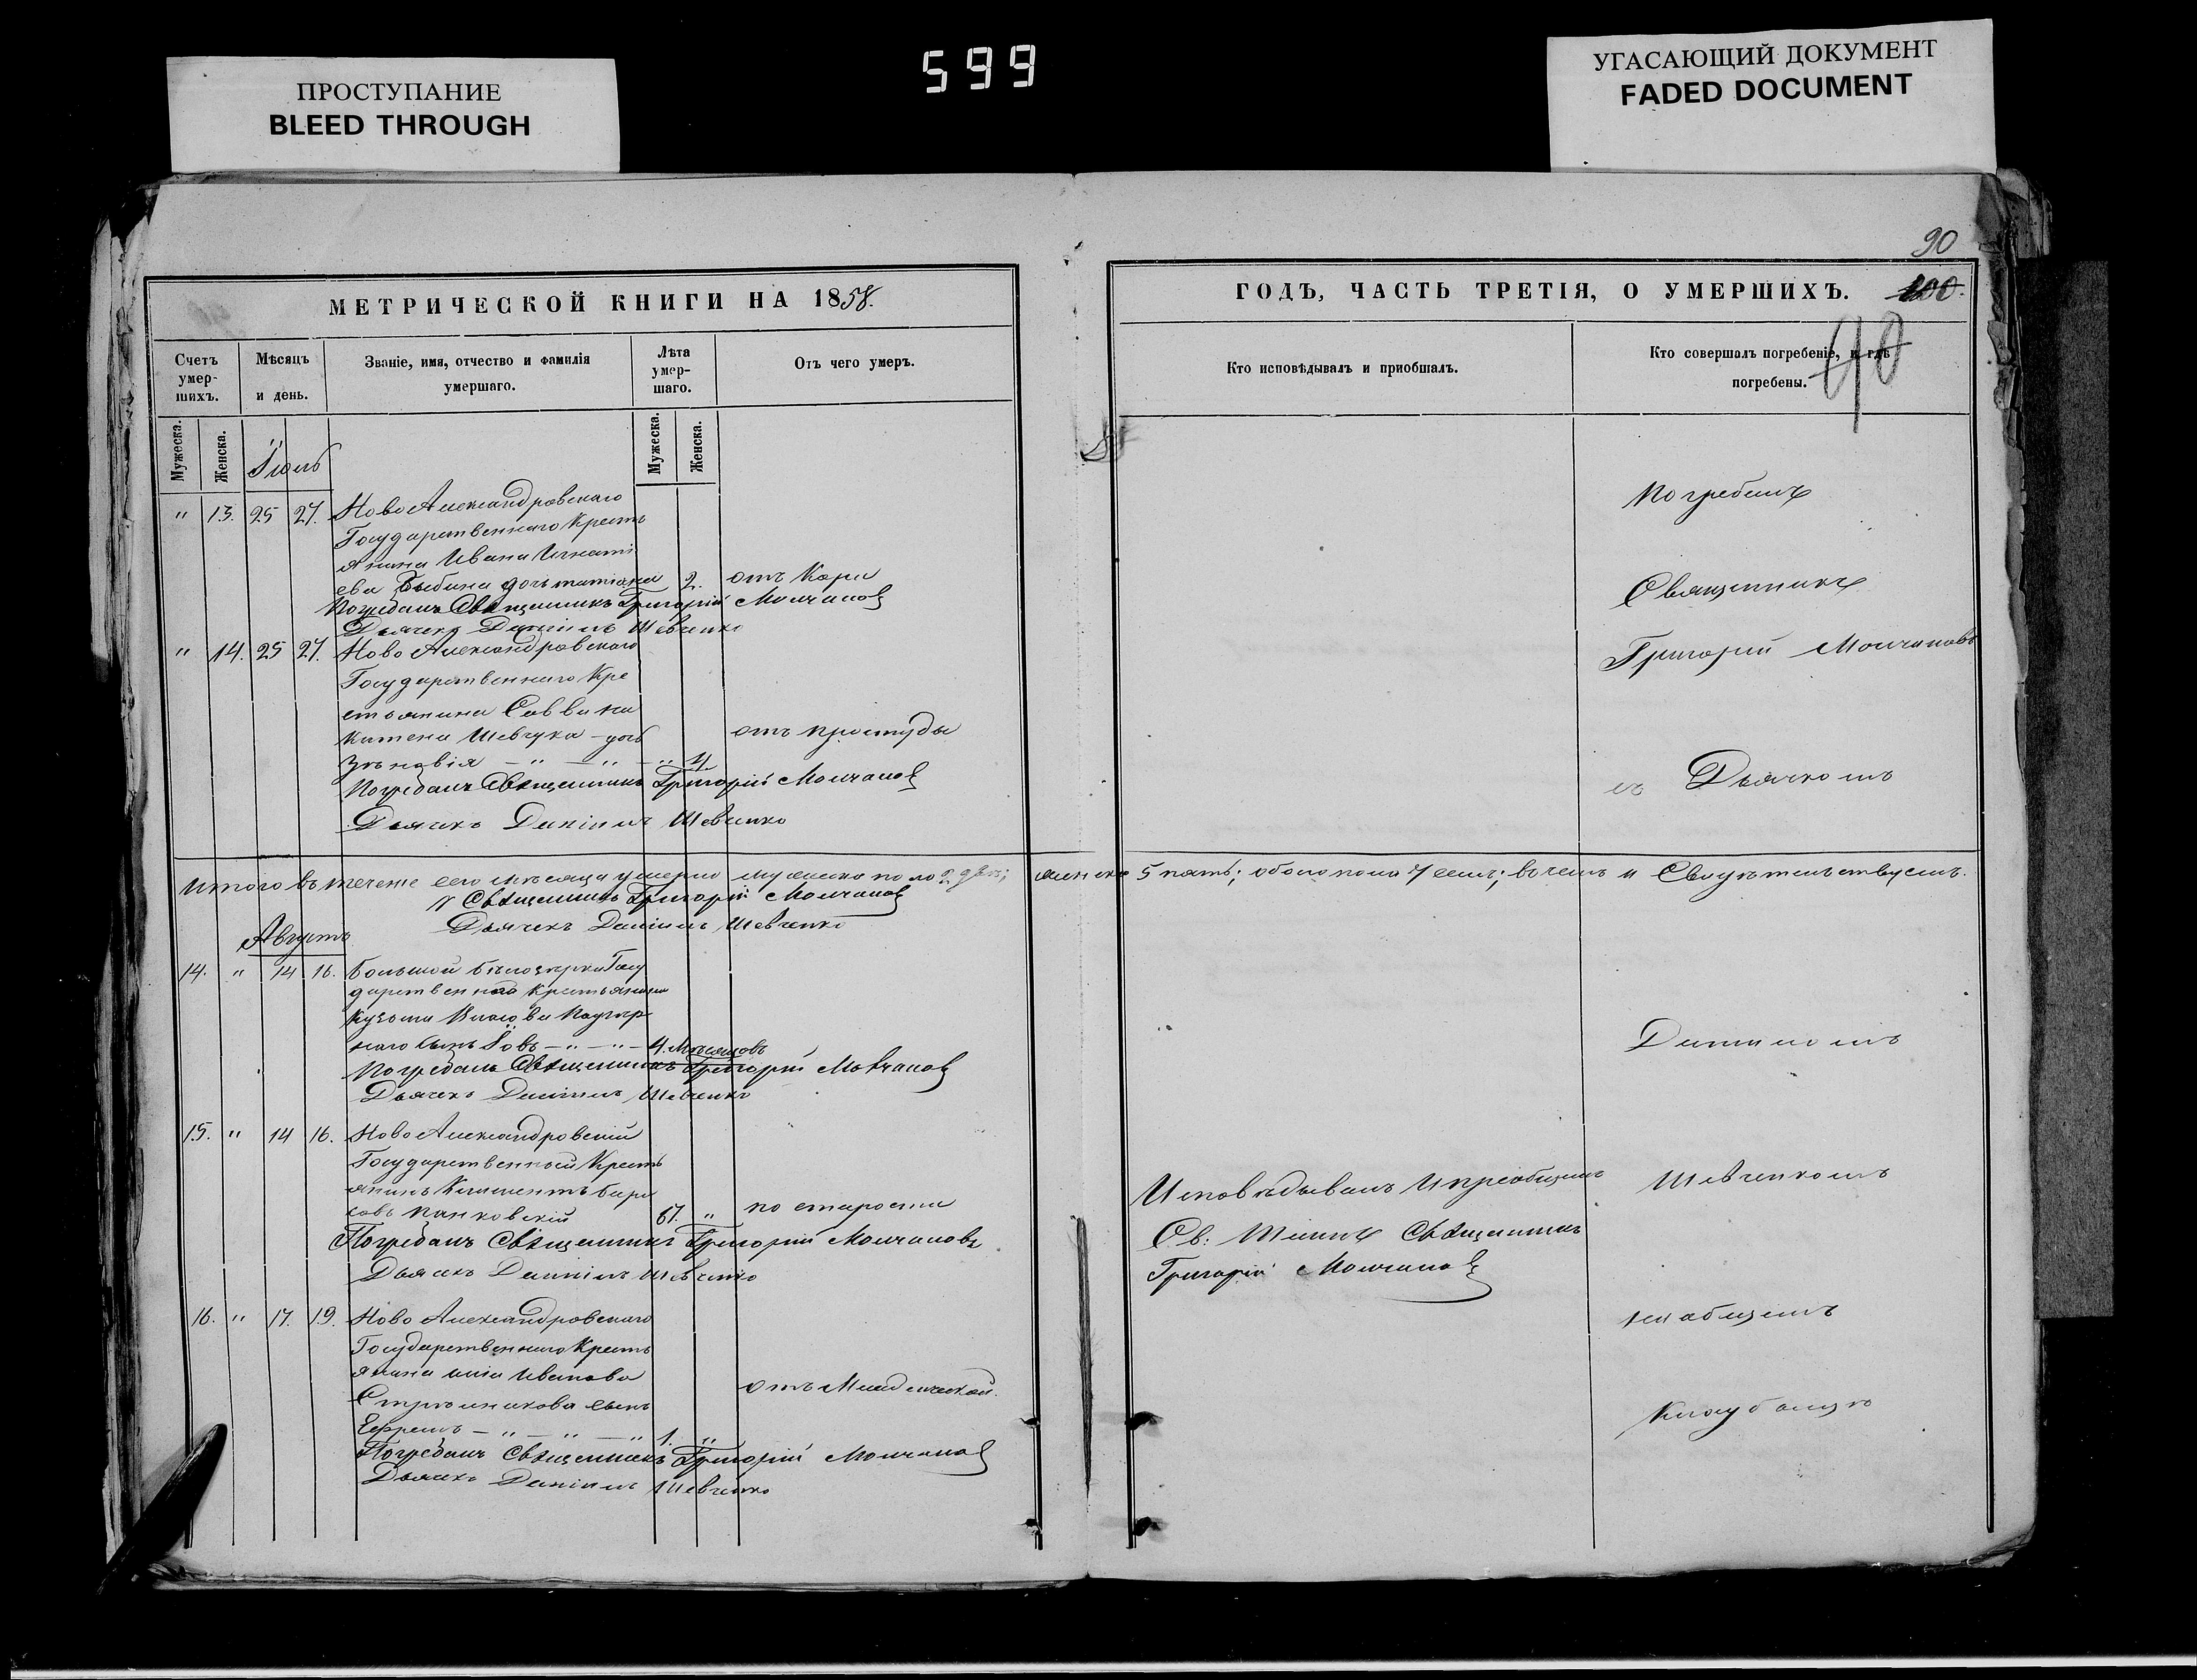 599
ПРОСТУПАНИЕ
BLEED THROUGH
УГАСАЮЩИЙ ДОКУМЕНТ
FADED DOCUMENT
90
МЕТРИЧЕСКОЙ КНИГИ НА 1858.
Счетъ умер-шихъ.
Мѣсяцъ и день.
Званіе, имя, отчество и фамилія умершаго.
Лѣта умер-шаго.
Отъ чего умеръ.
Мужеска.
Женска.
Мужеска.
Женска.
Іюль
" 13. 25 27. Ново Александровскаго
Государственнаго Кресть
янина Ивана Игнаті
ева дочь татіана 2. отъ Кори
Погребалъ Священникъ Григорій Молчановъ
Дьячекъ Даніилъ Шевченко
" 14. 25 27. Ново Александровскаго
Государственнаго Кре
стьянина Саввы Ни
китена Шевчука дочь отъ простуды
Зѣновія - " - " - " 4
Погребалъ Священникъ Григорій Молчановъ
Дьячекъ Даніилъ Шевченко
Итого въ теченіе сего мѣсяца умерло мужеска пола 2 два;
Священникъ Григорій Молчановъ
Дьячекъ Даніилъ Шевченко
Августъ
14. " 14 16. Большой бѣлозѣрки Госу
дарственнаго крестьянина
Кузьмы Власова
сынъ Іовъ - " - " - 4. Мѣсяцовъ
Погребалъ Священникъ Григорій Молчановъ
Дьячекъ Даніилъ Шевченко
15. " 14 16. Ново Александровскій
Государственный Кресть
янинъ Климентъ Бори
совъ Панковскій 67. " по старости
Погребалъ Священникъ Григорій Молчановъ
Дьячекъ Даніилъ Шевченко
16. " 17. 19. Ново Александровскаго
Государственнаго Кресть
янина Иванова
Стрѣльникова сынъ отъ Младенческой.
Ефремъ - " - " - " 1. "
Погребалъ Священникъ Григорій Молчановъ
Дьячекъ Даніилъ Шевченко
ГОДЪ, ЧАСТЬ ТРЕТІЯ, О УМЕРШИХЪ. 100.
90
Кто исповѣдывалъ и пріобщалъ.
Кто совершалъ погребеніе, и гдѣ погребены.
Погребалъ
Священникъ
Григорій Молчановъ
съ Дьячкомъ
женска 5 пять; обоего пола 7 семь; въ чемъ и Свидѣтельствуемъ.
Даниломъ
Исповѣдывалъ И преобщалъ
Св: Таинъ Священникъ
Григорій Молчановъ
Шевченкомъ
на общемъ
Кладбищѣ